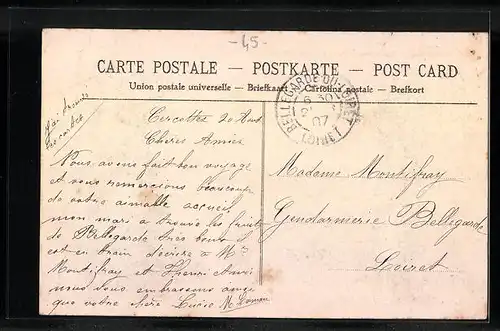 - 45 -
CARTE POSTALE — POSTKARTE — POST CARD
Union postale universelle — Briefkaart — Cartolina postale — Brefkort
BELLEGARDE-DU-LOIRET
6 30
07
LOIRET
J'ai trouvé
Cercottes 20 Aout
Chères Amies
Nous avons fait bon voyage
et vous remercions beaucoup
de votre aimable accueil
mon mari a trouvé les fruits
de Bellegarde très bons il
est en train d'écrire à Mr
Montifray et Henri
nous vous embrassons ainsi
que votre Lucie M.
Madame Montifray
Gendarmerie Bellegarde
Loiret